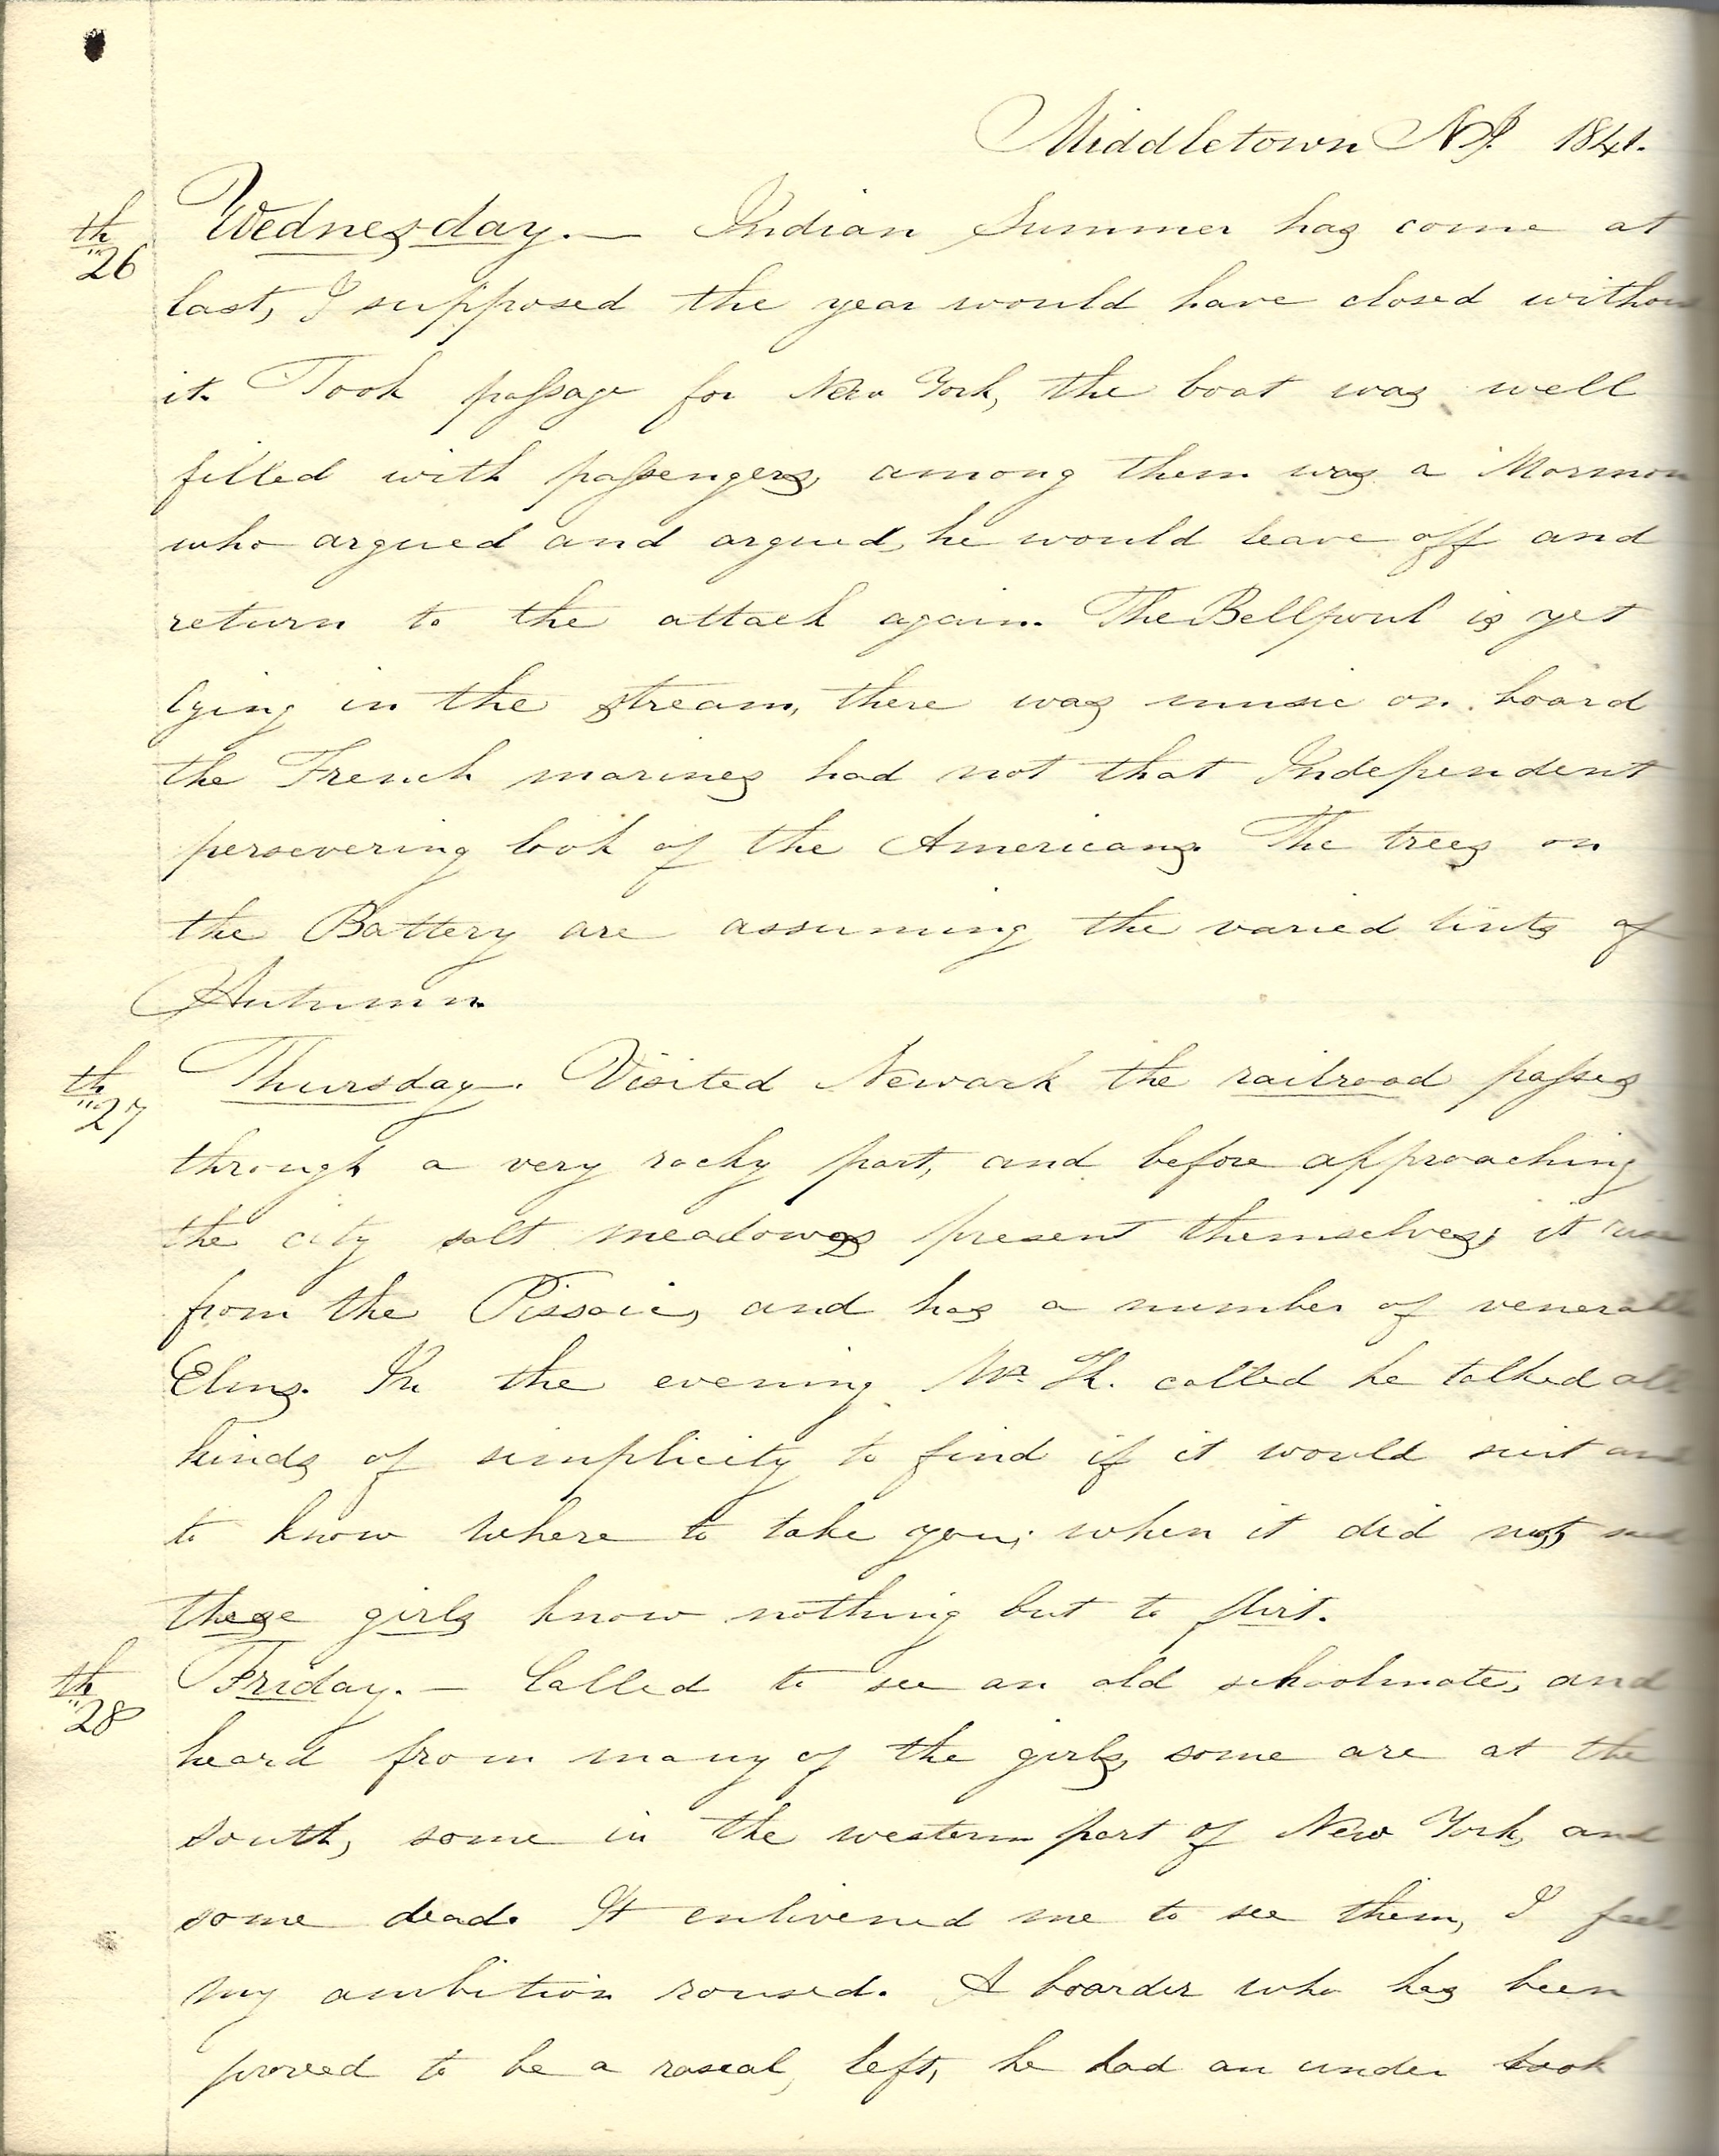 Middletown N.J. 1841.
th 26 Wednesday. — Indian Summer has come at
last, I supposed the year would have closed without
it. Took passage for New York, the boat was well
filled with passengers, among them was a Mormon
who argued and argued, he would leave off and
return to the attack again. The Bellpoul is yet
lying in the stream, there was music on board
the French marines had not that Independent
persevering look of the Americans. The trees on
the Battery are assuming the varied tints of
Autumn.
th 27 Thursday. Visited Newark the railroad passes
through a very rocky part, and before approaching
the city salt meadows present themselves; it
from the Pissaic, and has a number of venerable
Elms. In the evening Mr. Th. called he talked all
kinds of simplicity to find if it would suit and
to know where to take you; when it did not,
these girls know nothing but to flirt.
th 28 Friday. — Called to see an old schoolmate, and
heard from many of the girls, some are at the
south, some in the western part of New York, and
some dead. It enlivened me to see them, I feel
my ambition roused. A boarder who has been
proved to be a rascal, left, he had an under look